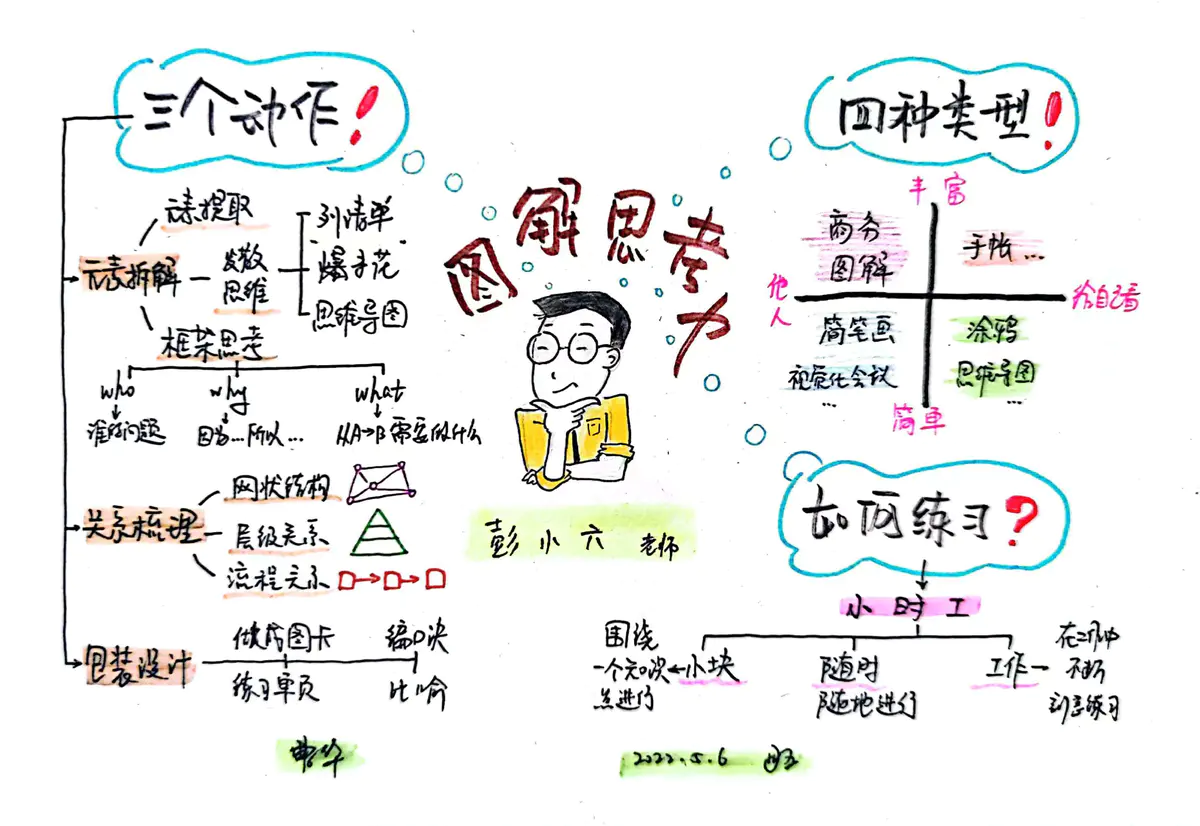 三个动作！
元素拆解
元素提取
发散
思维
列清单
"爆米花"
思维导图
框架思考
who
why
what
谁的问题
因为…所以…
从A→B需要做什么
关系梳理
网状结构
层级关系
流程关系
包装设计
做成图卡
编口诀
练习单页
比喻
图解思考力
彭小六 老师
四种类型！
丰富
商务
图解
手帐…
他人
给自己看
简笔画
视觉化会议
…
涂鸦
思维导图
…
简单
如何练习？
小时工
围绕
一个知识
点进行
小块
随时
随地进行
工作
在工作中
不断
刻意练习
2022.5.6